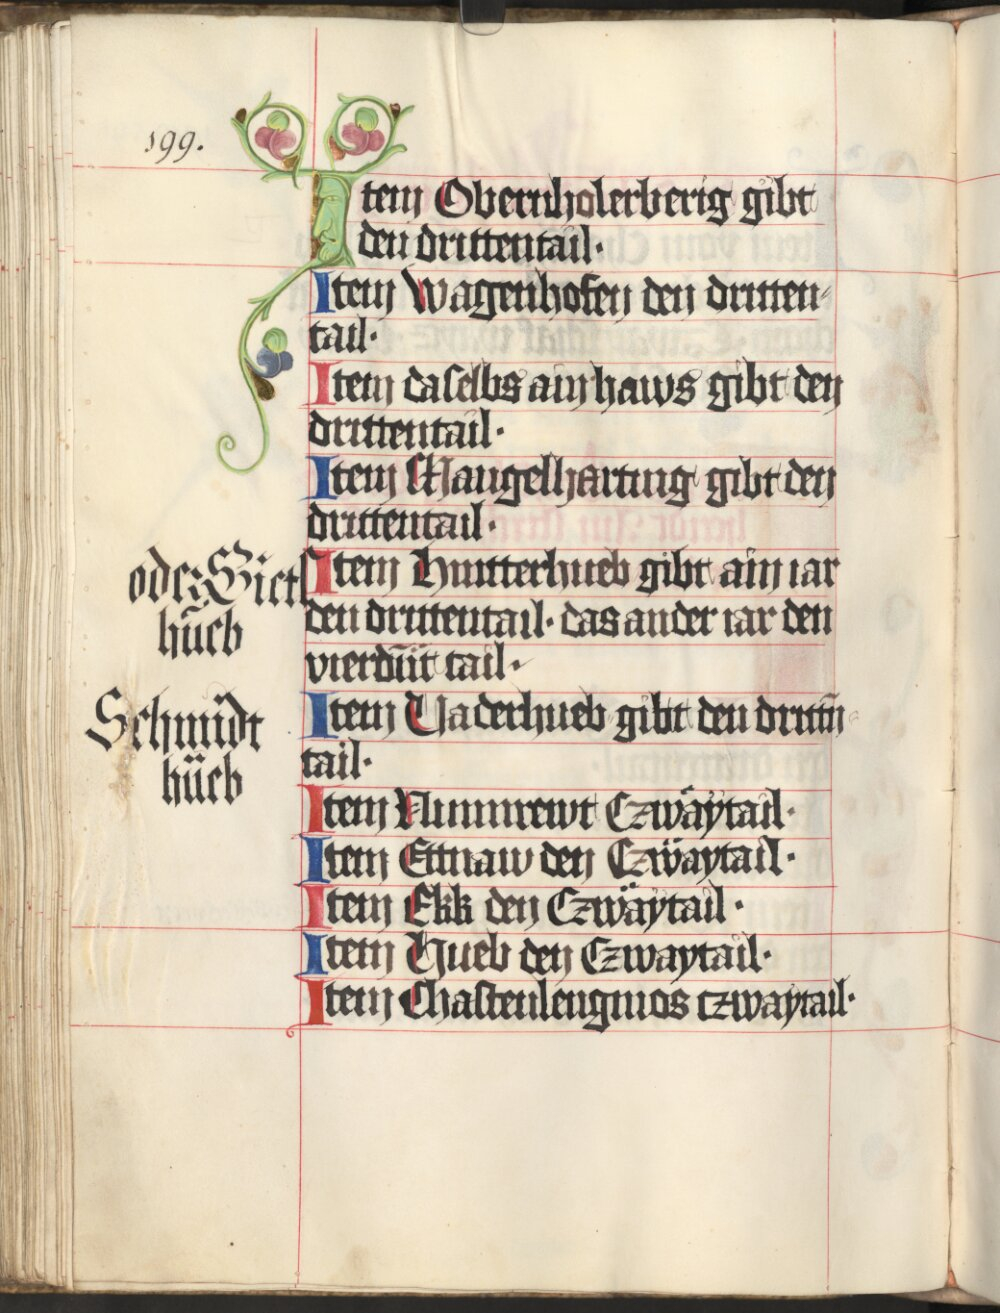 199.
Item Obernholerberig gibt
den drittentail·
Item Wagenhofen den dritten-
tail·
Item daselbs ain haws gibt den
drittentail·
Item Maugelharting gibt den
drittentail·
oder Gietl
hüeb
Item Huntterhueb gibt ain iar
den drittentail· das ander iar den
vierdūt tail·
Schmidt
hüeb
Item Vaderhueb gibt den drittn̄
tail·
Item Nunnrewt Czwäytail·
Item Ettnaw den Czwäytail·
Item Ekk den Czwäytail·
Item Hueb den Czwaytail·
Item Chastenlengmos czwaytail·